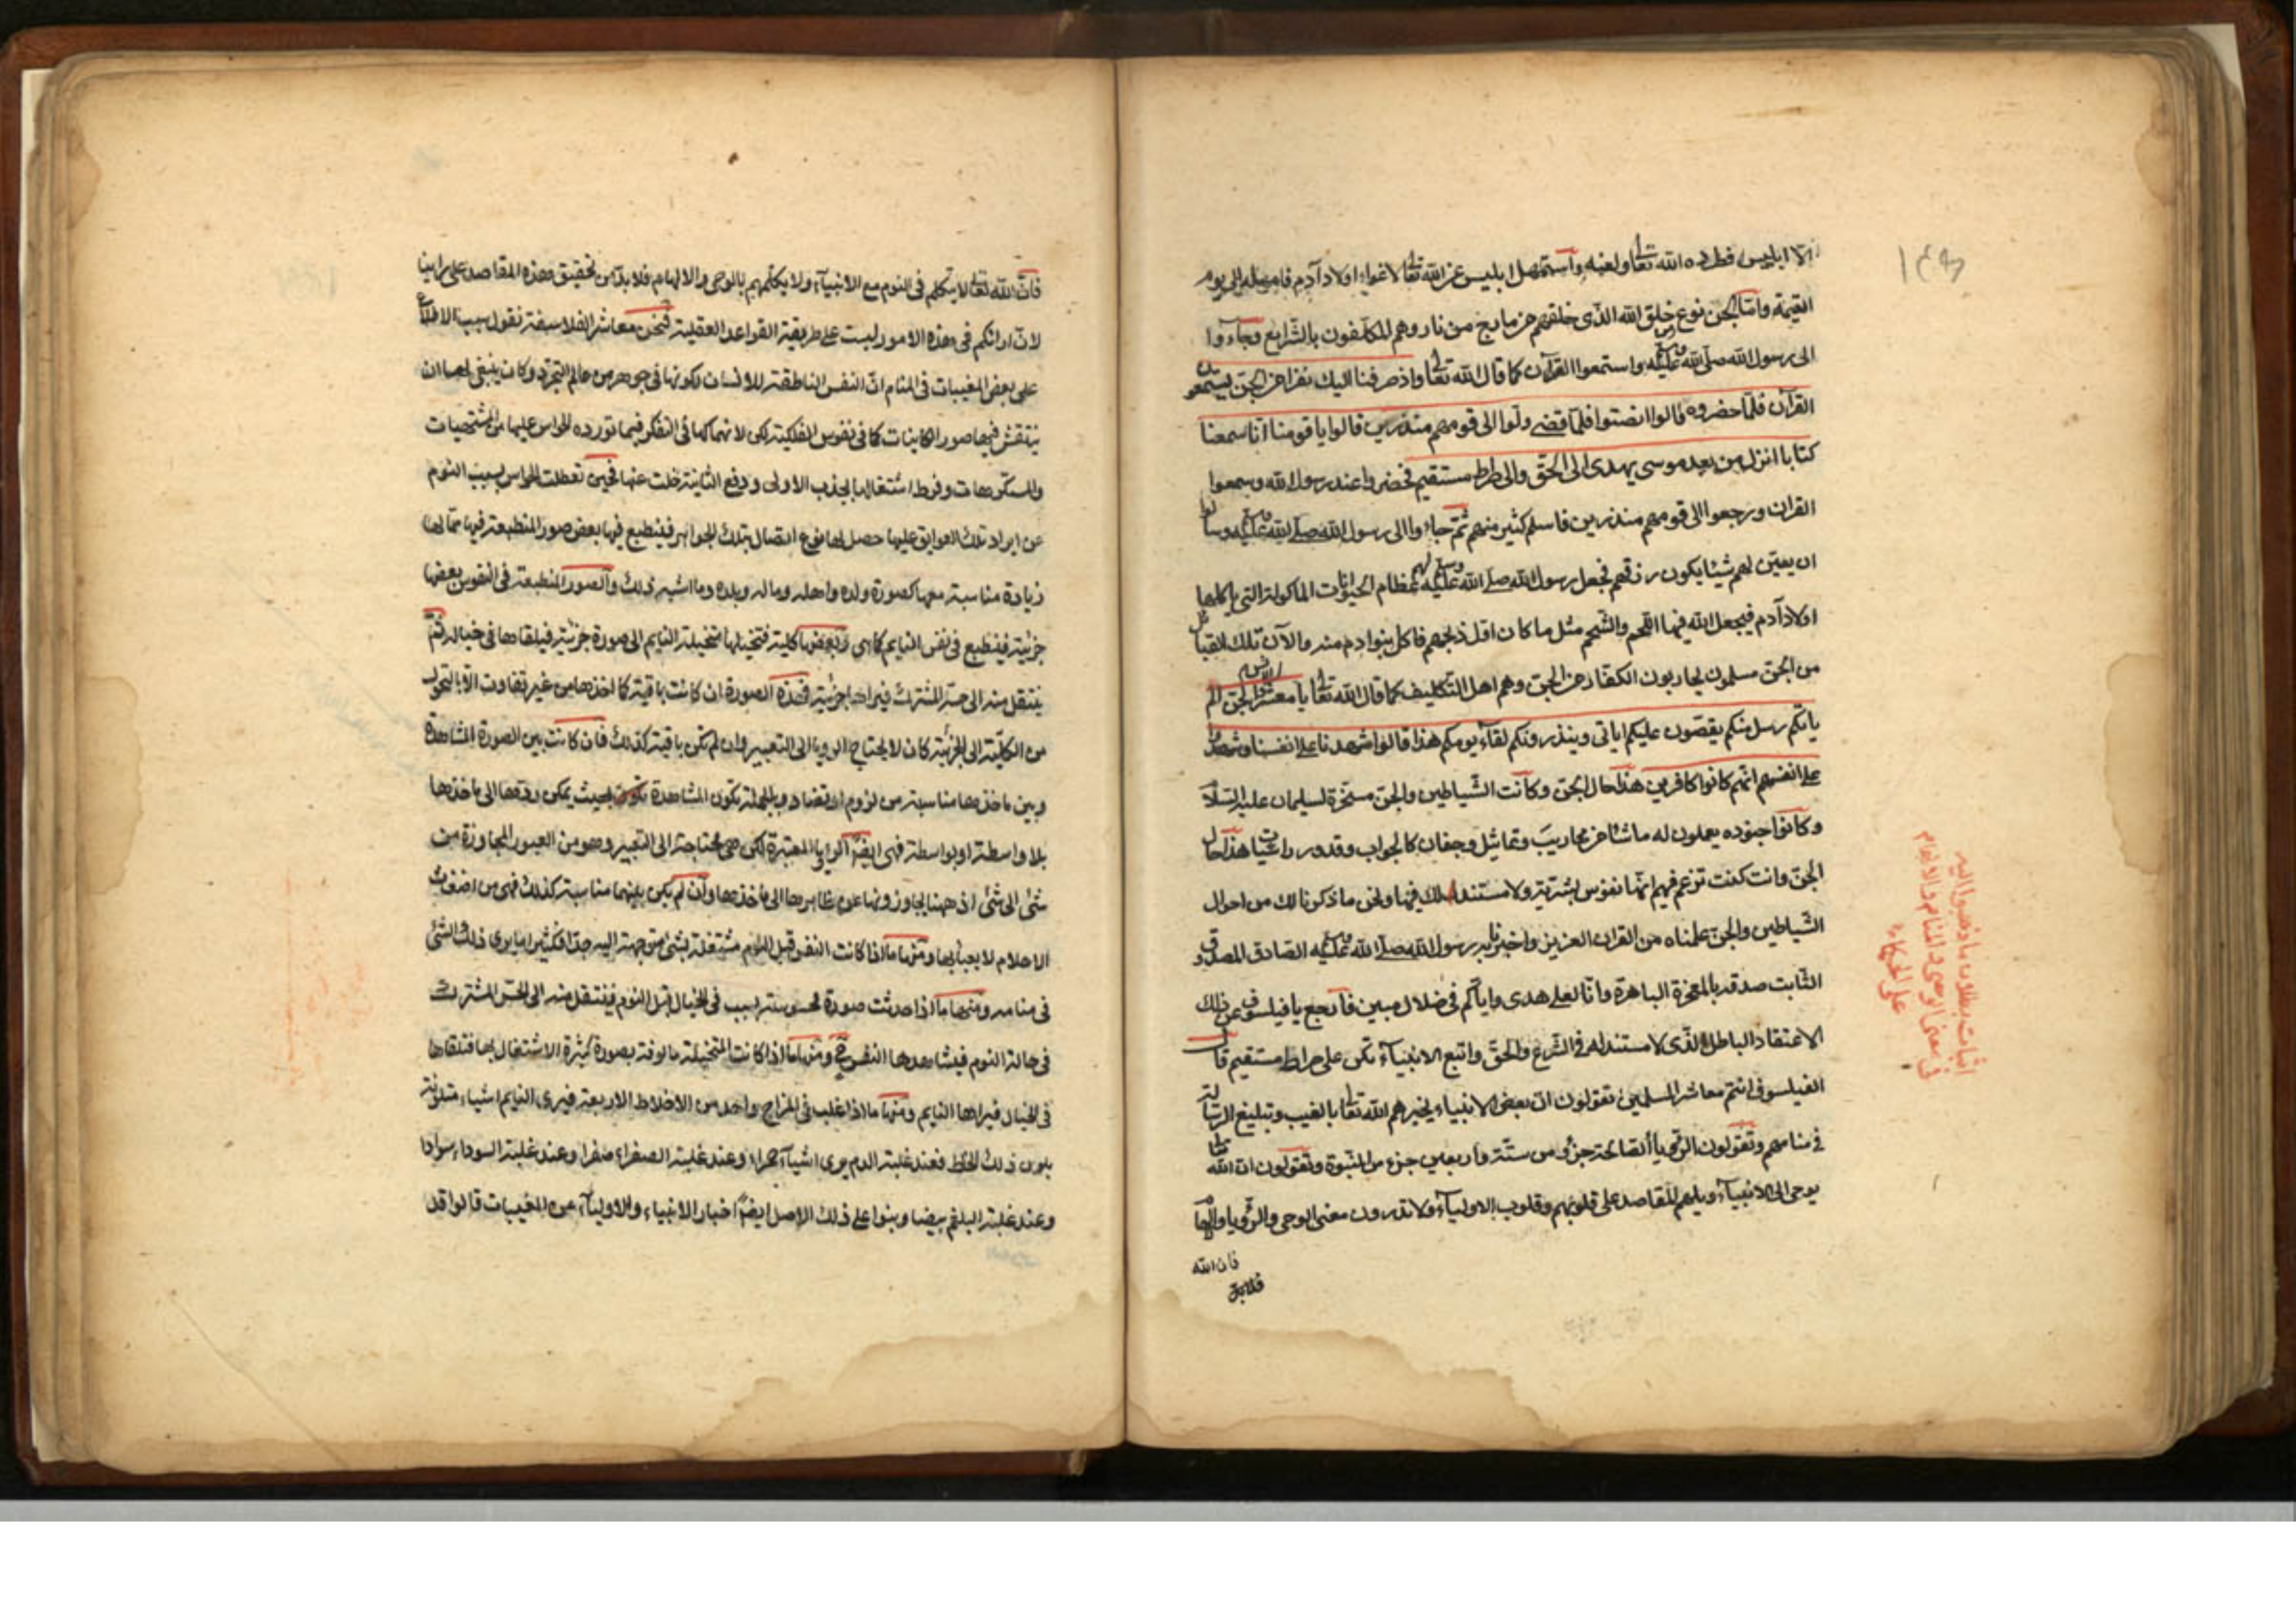 الا ابليس فطرده الله تعالى ولعنه واستمهل ابليس عن الله تعالى لاغواء اولاد آدم فامهله الى يوم
القيمة وامّا الجن نوع خلق الله الذى خلقهم من مارج من نار وهم المكلّفون بالشرايع وجاءوا
الى رسول الله صلى الله عليه وسلم واستمعوا القرآن كما قال الله تعالى واذ صرفنا اليك نفرا من الجنّ يستمعون
القرآن فلمّا حضروه قالوا انصتوا فلمّا قضى ولّوا الى قومهم منذرين قالوا يا قومنا انّا سمعنا
كتابا انزل من بعد موسى يهدى الى الحقّ والى طريق مستقيم فحضروا عند رسول الله وسمعوا
القران ورجعوا الى قومهم منذرين فاسلم كثير منهم ثمّ جاءوا الى رسول الله صلى الله عليه وسلم وسألوا
ان يعيّن لهم شيئا يكون رزقهم فجعل رسول الله صلى الله عليه وسلم لهم عظام الحيوانات الماكولة التى ياكلها
اولاد آدم فيجعل الله فيها اللحم والشحم مثل ما كان اوّل ذبحهم فاكل بنوا دم منه والآن تلك القبائل
من الجنّ مسلمون يحاربون الكفّار من الجن وهم اهل التكليف كما قال الله تعالى يا معشر الجن والانس الم
يأتكم رسل منكم يقصّون عليكم اياتى وينذرونكم لقاء يومكم هذا قالوا شهدنا على انفسنا وشهدوا
على انفسهم انّهم كانوا كافرين هذا حال الجن وكانت الشّياطين والجن مسخّرة لسليمان عليه السّلام
وكانوا جنوده يعملون له ما شاء من محاريب وتماثيل وجفان كالجواب وقدور راسيات هذا حال
الجنّ وانت كنت تزعم فيهم انّها نفوس بشريّة ولا مستند لك فيها ونحن ما ذكرنا لك من احوال
الشّياطين والجن علمناه من القران العزيز واخبرنا به رسول الله صلى الله عليه وسلم الصّادق المصدوق
الثّابت صدقه بالمعجزة الباهرة وانّا لعلى هدى وايّاكم فى ضلال مبين فارجع يا فيلسوف عن ذلك
الاعتقاد الباطل الّذى لا مستند له فى الشّرع والحقّ واتبع الانبياء تكن على صراط مستقيم قال
الفيلسوف انتم معاشر المسلمين تقولون انّ بعض الانبياء يخبرهم الله تعالى بالغيب وتبليغ الرسالة
فى منامهم وتقولون الرّؤيا الصّالحة جزء من ستّة واربعين جزء من النّبوة وتقولون انّ الله تعالى
يوحى الى الانبياء ويلهم المقاصد على قلوبهم وقلوب الاولياء ولا تدرون معنى الوحى والرّؤيا والالهام
فان الله
اثبات بطلان ما ذهبوا اليه
فى معنى الوحى والمنام والالهام
على الحكماء
فانّ الله تعالى لا يتكلم فى النوم مع الانبياء ولا يكلّمهم بالوحى والالهام فلا بدّ من تحقيق هذه المقاصد على راينا
لانّ اراءكم فى هذه الامور ليست على طريقة القواعد العقلية فنحن معاشر الفلاسفة نقول سبب الاطلاع
على بعض المغيبات فى المنام انّ النفس الناطقة للانسان لكونها فى جوهر من عالم التجرّد وكان ينبغى لها ان
ينتقش فيها صور الكاينات كما فى نفوس الفلكية لكن لانهماكها فى التفكر فيما تورده الحواس عليها من المشتهيات
والمكروهات وفرط اشتغالها بجذب الاولى ودفع الثانية خلت عنها فحين تعطلت الحواس بسبب النوم
عن ايراد تلك العوايق عليها حصل لها نوع اتصال بتلك الجواهر فينطبع فيها بعض صور المنطبعة فيها ممّا لها
زيادة مناسبة معها كصورة ولده واهله وماله وبلده وما اشبه ذلك والصور المنطبعة فى النفوس بعضها
جزئية فينطبع فى نفس النايم كما هى وبعضها كلية فتخيلها متخيلة النايم الى صورة جزئية فيلقاها فى خياله ثمّ
ينتقل منه الى حسّ المشترك فيراها جزئية فهذه الصورة ان كانت باقية كما اخذها من غير تفاوت الّا بالتحوّل
من الكليّة الى الجزئية كان لا يحتاج الرويا الى التعبير وان لم تكن باقية كذلك فان كانت بين الصورة المشاهدة
وبين ماخذها مناسبة من لزوم او تضاد وبالجملة تكون المشاهدة بحيث يمكن ردّها الى ماخذها
بلا واسطة او بواسطة فهى ايضا الرويا المعتبرة لكن هى محتاجة الى التعبير وهو من العبور المجاوزة من
شئ الى شئ اذ ههنا يجاوزونها عن ظاهرها الى ماخذها وان لم يكن بينهما مناسبة كذلك فهى من اضغاث
الاحلام لا يعبأ بها ومنها ما اذا كانت النفس قبل النوم مشتغلة بشئ متوجهة اليه جدّا فكثيرا ما يرى ذلك الشئ
فى منامه ومنها ما اذا حدثت صورة محسوسة لسبب فى الخيال قبل النوم فينتقل منه الى الحسّ المشترك
فى حالة النوم فيشاهدها النفس ح ومنها ما اذا كانت المتخيلة مالوفة بصورة كثيرة الاشتغال بها فتلقاها
فى الخيال فيراها النايم ومنها ما اذا غلب فى المزاج واحد من الاخلاط الاربعة فيرى النايم اشياء متلوّنة
بلون ذلك الخلط فعند غلبة الدم يرى اشياء حمراء وعند غلبة الصفراء صفرا وعند غلبة السوداء سوادا
وعند غلبة البلغم بيضا وبنوا على ذلك الاصل ايضا اخبار الانبياء والاولياء عن المغيبات قالوا قد